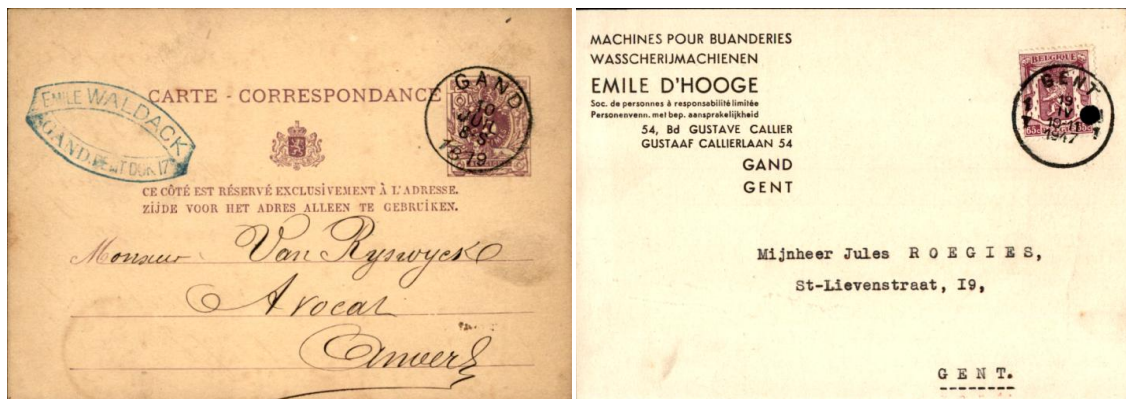 EMILE WALDACK
GAND.
CARTE - CORRESPONDANCE
GAND
10
8-S
1879
CE CÔTÉ EST RÉSERVÉ EXCLUSIVEMENT À L'ADRESSE.
ZIJDE VOOR HET ADRES ALLEEN TE GEBRUIKEN.
Monsieur Van Ryswyck
Avocat
Anvers
MACHINES POUR BUANDERIES
WASSCHERIJMACHIENEN
EMILE D'HOOGE
Soc. de personnes à responsabilité limitée
Personenvenn. met bep. aansprakelijkheid
54, Bd GUSTAVE CALLIER
GUSTAAF CALLIERLAAN 54
GAND
GENT
BELGIQUE
65c
GENT
1
19
IV
1947
1
Mijnheer Jules ROEGIES,
St-Lievenstraat, I9,
GENT.